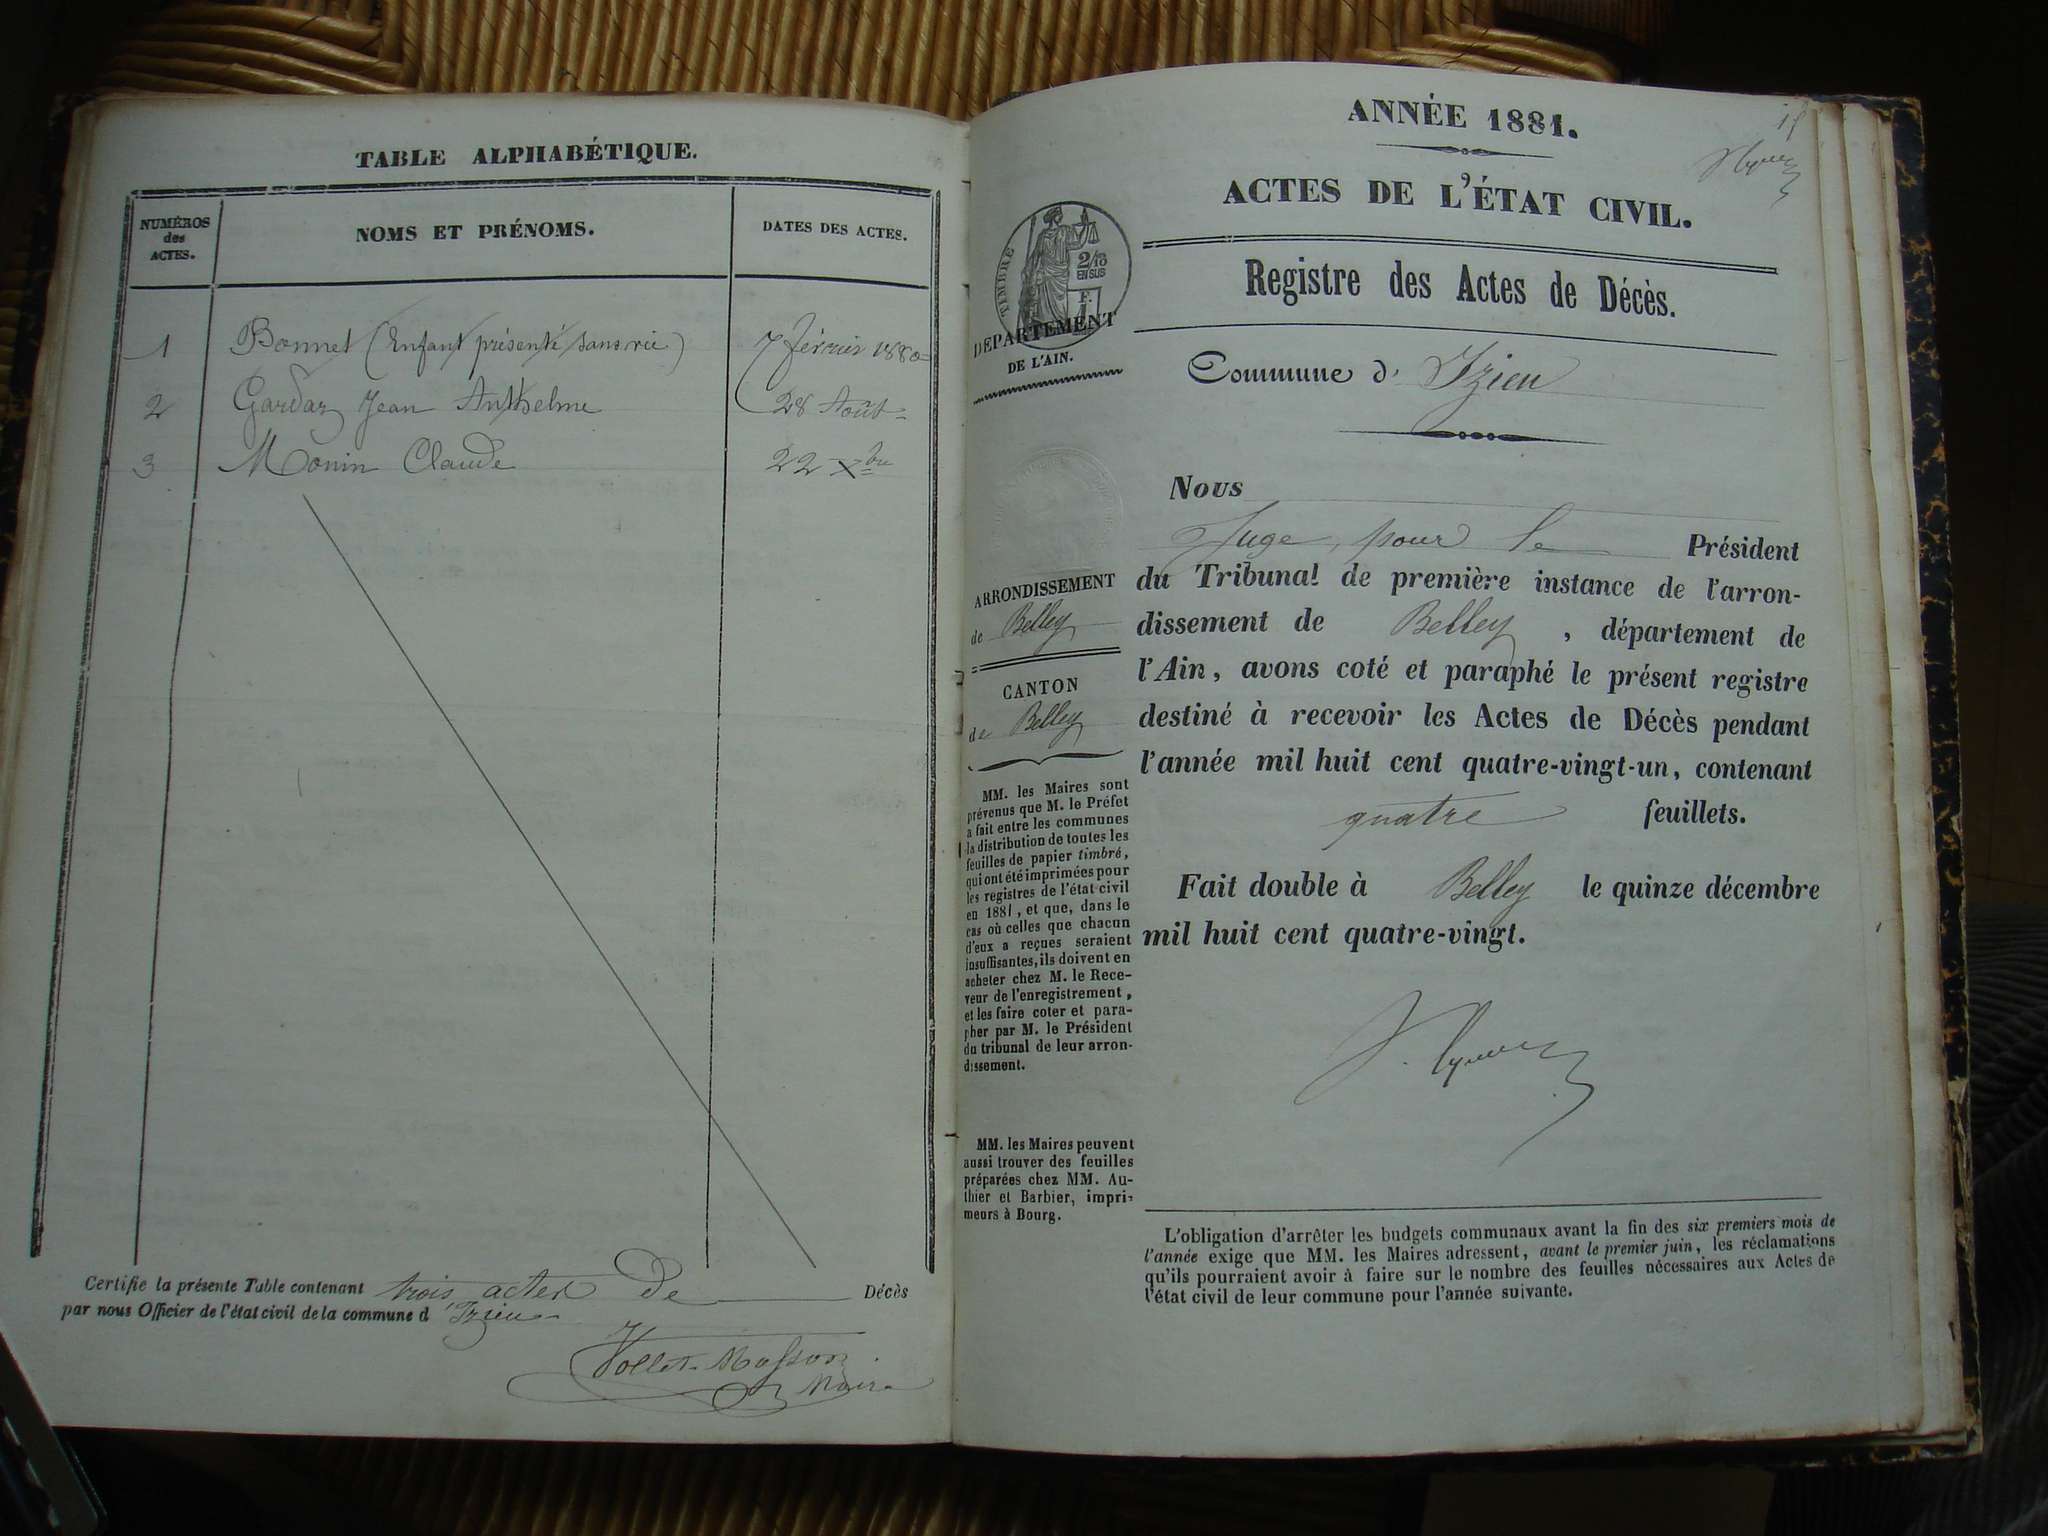 TABLE ALPHABÉTIQUE.
NUMÉROS
des
ACTES.
NOMS ET PRÉNOMS.
DATES DES ACTES.
1 Bonnet (Enfant présenté sans vie) 7 février 1880
2 Gardaz Jean Anthelme 28 Août
3 Monin Claude 22 Xbre
Certifie la présente Table contenant trois actes de Décès
par nous Officier de l'état civil de la commune d'Izieu
Vollet-Masson
Maire
ANNÉE 1881.
ACTES DE L'ÉTAT CIVIL.
Registre des Actes de Décès.
TIMBRE
2/10
EN SUS
F.
DEPARTEMENT
DE L'AIN.
Commune d'Izieu
ARRONDISSEMENT
de Belley
CANTON
de Belley
MM. les Maires sont
prévenus que M. le Préfet
a fait entre les communes
la distribution de toutes les
feuilles de papier timbré,
qui ont été imprimées pour
les registres de l'état civil
en 1881, et que, dans le
cas où celles que chacun
d'eux a reçues seraient
insuffisantes, ils doivent en
acheter chez M. le Rece-
veur de l'enregistrement,
et les faire coter et para-
pher par M. le Président
du tribunal de leur arron-
dissement.
MM. les Maires peuvent
aussi trouver des feuilles
préparées chez MM. Au-
thier et Barbier, impri-
meurs à Bourg.
Nous
Juge, pour le Président
du Tribunal de première instance de l'arron-
dissement de Belley, département de
l'Ain, avons coté et paraphé le présent registre
destiné à recevoir les Actes de Décès pendant
l'année mil huit cent quatre-vingt-un, contenant
quatre feuillets.
Fait double à Belley le quinze décembre
mil huit cent quatre-vingt.
L'obligation d'arrêter les budgets communaux avant la fin des six premiers mois de
l'année exige que MM. les Maires adressent, avant le premier juin, les réclamations
qu'ils pourraient avoir à faire sur le nombre des feuilles nécessaires aux Actes de
l'état civil de leur commune pour l'année suivante.